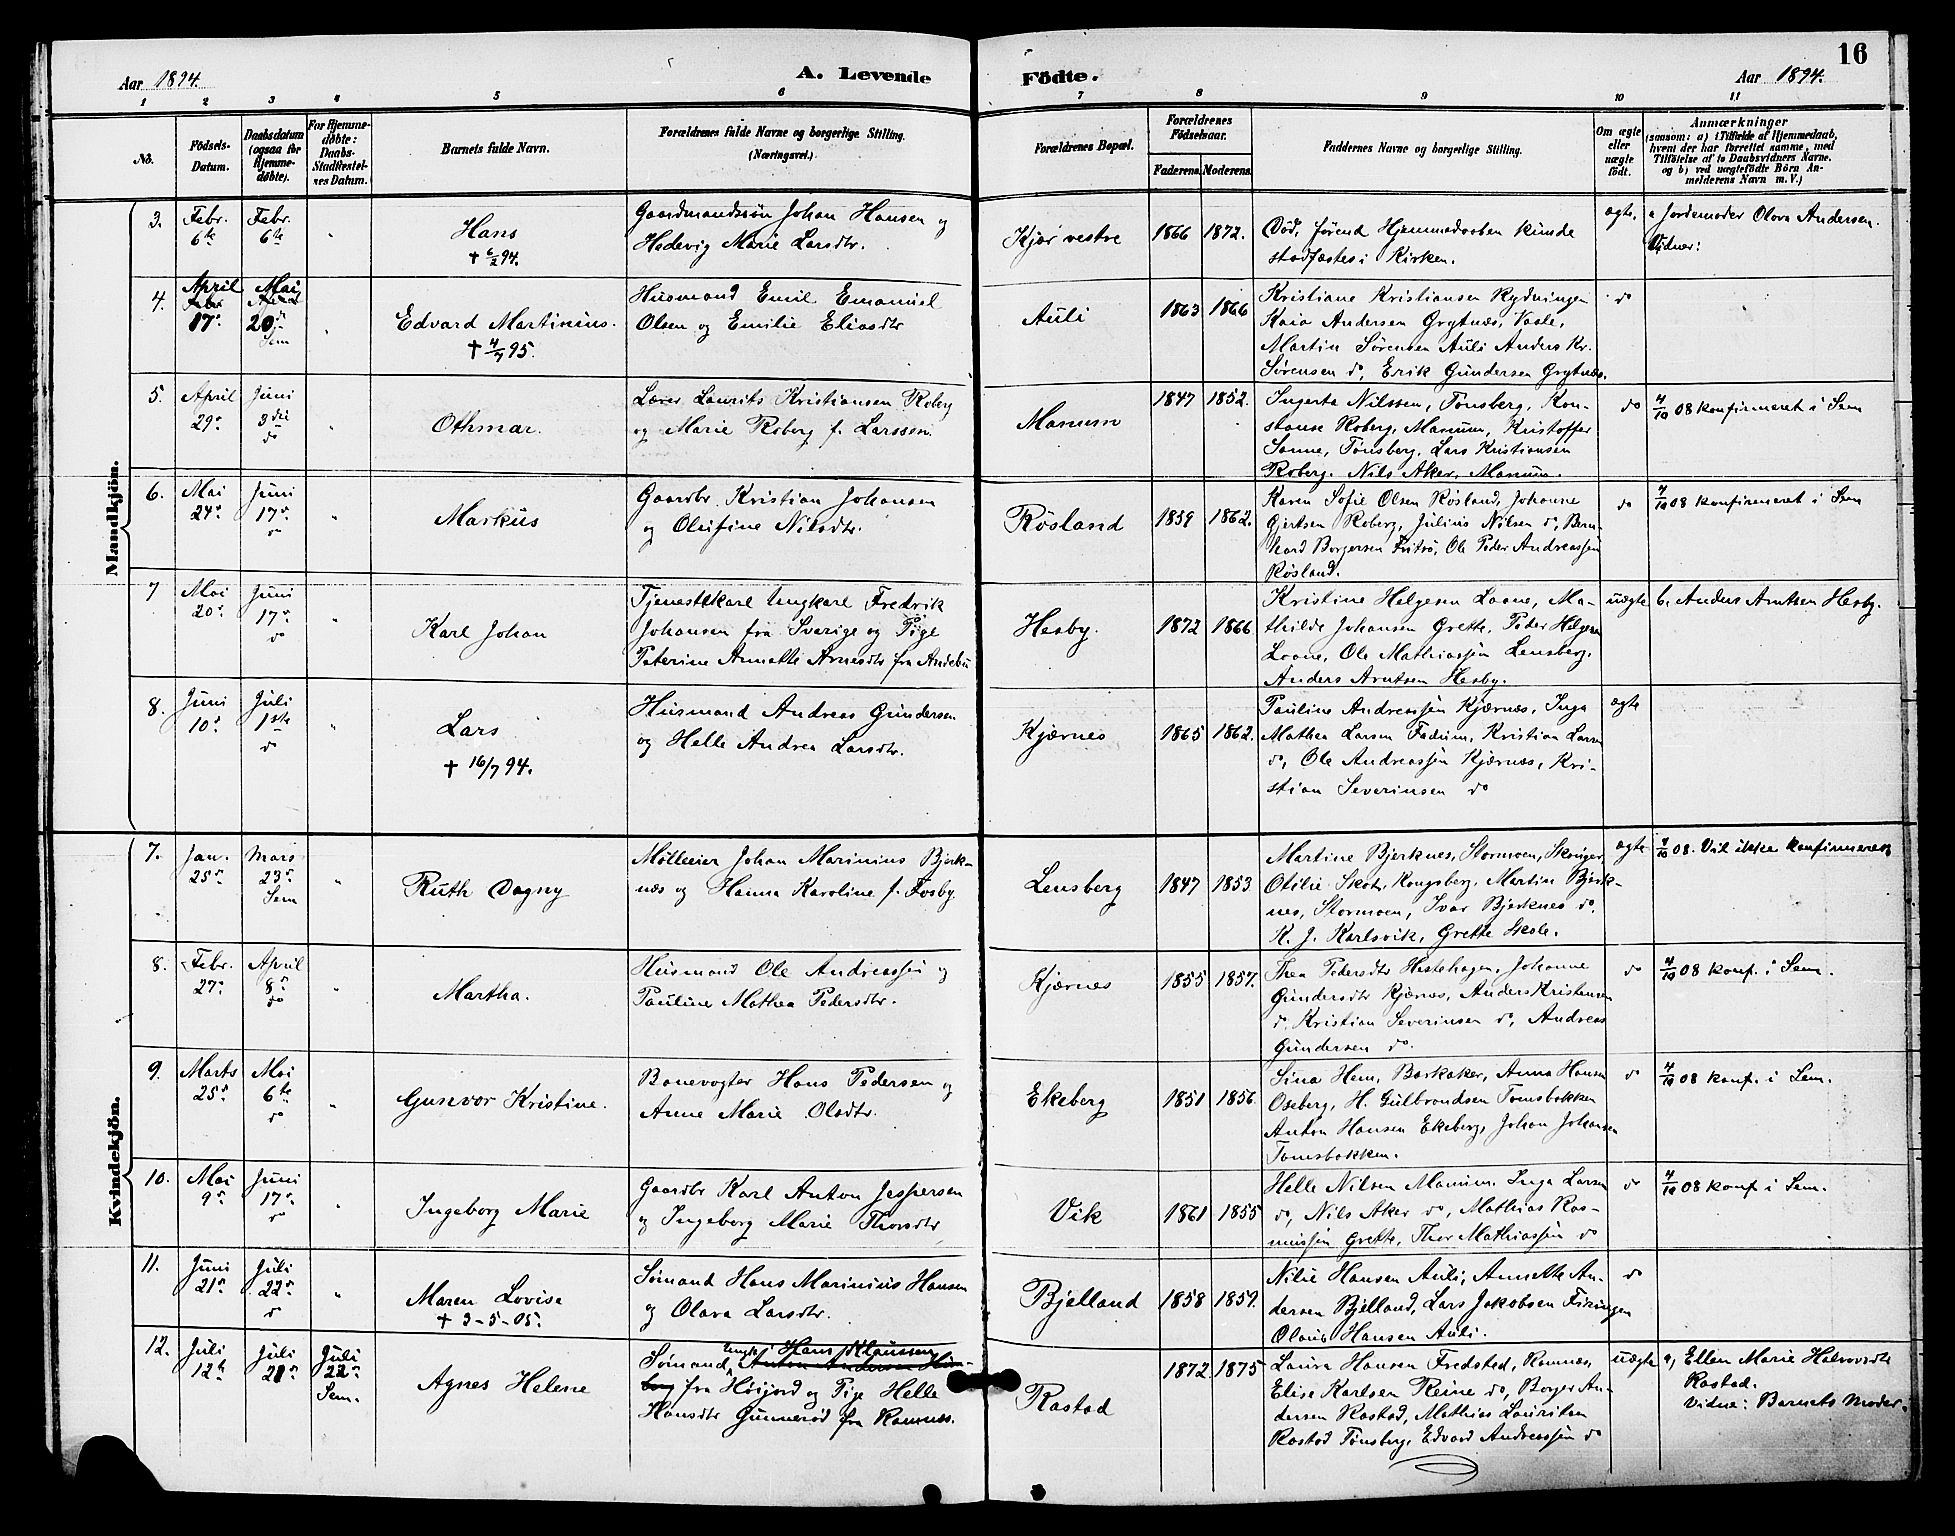 Aar 1894.
A. Levende Födte.
Aar 1894.
16
1 2 3 4 5 6 7 8 9 10 11
No.
Födsels-Datum.
Daabsdatum (ogsaa for Hjemmedøbte).
For Hjemmedøbte: Daabs-Stadfæstelsens Datum.
Barnets fulde Navn.
Forældrenes fulde Navne og borgerlige Stilling.
(Næringsvei.)
Forældrenes Bopæl.
Forældrenes Födselsaar.
Faderens. Moderens.
Faddernes Navne og borgerlige Stilling.
Om ægte eller uægte født.
Anmærkninger
(saasom: a) i Tilfælde af Hjemmedaab,
hvem der har forrettet samme, med
Tilføielse af to Daabsvidners Navne.
og b) ved uægtefødte Børn An-
melderens Navn m. V.)
Mandkjön.
3. Febr. 6te Febr. 6te " Hans
† 6/2 94.
Gaardmandssøn Johan Hansen og
Hedevig Marie Larsdtr.
Kjær vestre 1866 1872.
Død, førend Hjemmedaaben kunde
stadfæstes i Kirken.
ægte.
a Jordemoder Olava Andersen.
Vidner:
4. April Febr 17de Mai 20de Sem " Edvard Martinius.
† 4/7 95.
Husmand Emil Emanuel
Olsen og Emilie Eliasdtr
Auli 1863 1866
Kristiane Kristiansen Rydningen
Kaia Andersen Grytnæs, Vasle,
Martin Sørensen Auli Anders Kr.
Sørensen do, Erik Gundersen Grytnæs.
do
5. April 29de Juni 3die do " Othmar.
Lærer Laurits Kristiansen Roberg
og Marie Roberg f. Larssen.
Manum 1847 1852.
Ingerta Nilssen, Tønsberg, Kon-
stanse Roberg, Manum, Kristoffer
Sanne, Tønsberg, Lars Kristiansen
Roberg. Nils Aker, Manum.
do
4/10 08 konfirmeret i Sem
6. Mai 24de Juni 17de do " Markus
Gaardbr. Kristian Johansen
og Olufine Nilsdtr.
Røsland 1859 1862.
Karen Sofie Olsen Røsland, Johanne
Gjertsen Roberg, Julius Nilsen do, Bern-
hard Borgersen Fritsø, Ole Peder Andreassen
Røsland.
do
4/10 08 konfirmeret i Sem
7 Mai 20de Juni 17de do " Karl Johan
Tjenestekarl Ungkarl Fredrik
Johansen fra Sverige og Pige
Peterine Annette Arnesdtr fra Andebu
Hesby. 1872 1866
Kristine Helgesen Loone, Ma-
thilde Johansen Grette. Peder Helgesen
Loone, Ole Mathiassen Lensberg,
Anders Arntsen Hesby.
uægte
b. Anders Arntsen Hesby.
8. Juni 10de Juli 1ste do " Lars
† 16/7 94.
Husmand Andreas Gundersen
og Helle Andrea Larsdtr.
Kjærnes 1865 1862.
Pauline Andreassen Kjærnes, Inga
Mathea Larsen Fadum, Kristian Larsen
do, Ole Andreassen Kjærnæs, Kri-
stian Severinsen do
ægte
Kvindekjön.
7. Jan. 25de Mars 23de Sem " Ruth Dagny
Mølleeier Johan Marinius Bjerk-
næs og Hanna Karoline f. Fosby.
Lensberg 1847 1853
Martine Bjerknes, Stormoen, Skoger,
Otilie Skot, Kongsberg, Martin Bjerk-
nes, Stormoen, Ivar Bjerknes do.
K. J. Karlsvik, Grette Skole.
ægte
4/10 08. Vil ikke konfirmeres
8. Febr. 27de April 8de do " Martha.
Husmand Ole Andreassen og
Pauline Mathea Pedersdtr.
Kjærnes 1855 1857.
Thea Pedersdtr Hesthagen, Johanne
Gundersdtr Kjærnæs, Anders Kristensen
do, Kristian Severinsen do, Andreas
Gundersen do.
do
4/10 08 konf. i Sem.
9. Marts 25de Mai 6te do " Gunvor Kristine.
Banevogter Hans Pedersen og
Anne Marie Olsdtr.
Ekeberg 1851 1856.
Sina Hem, Barkaker, Anna Hansen
Oseberg, H. Gulbrandsen Tomsbakken
Anton Hansen Ekeberg, Johan Johansen
Tomsbakken.
do
4/10 08 konf. i Sem.
10. Mai 9de Juni 17de do " Ingeborg Marie
Gaardbr Karl Anton Jespersen
og Ingeborg Marie Thorsdtr
Vik 1861 1855
Helle Nilsen Manum. Inga Larsen
do, Nils Aker do, Mathias Ras-
mussen Grette, Thor Mathiassen do
do
4/10 08 konf i Sem.
11. Juni 21de Juli 22de do " Maren Lovise
† 3-5-05.
Sømand Hans Marinius Hansen
og Olava Larsdtr.
Bjelland 1858 1859.
Nilie Hansen Auli, Annette An-
dersen Bjelland, Lars Jakobsen Firingen
Olaus Hansen Auli.
do
12. Juli 12te Juli 21de Juli 22de Sem. Agnes Helene
Ungk. Hans Klaussen
Sømand, Anton Andersen
fra Høijord og Pige Helle
Hansdtr Gunnerød fra Ramnæs.
Rastad 1872 1875
Laura Hansen Fredstad, Ramnæs,
Elise Karlsen Reine do, Borger An-
dersen Rastad, Mathias Lauritsen
Rastad Tønsberg, Edvard Andreassen do
uægte
a, Ellen Marie Halvorsdtr
Rastad.
Vidne: Barnets Moder.